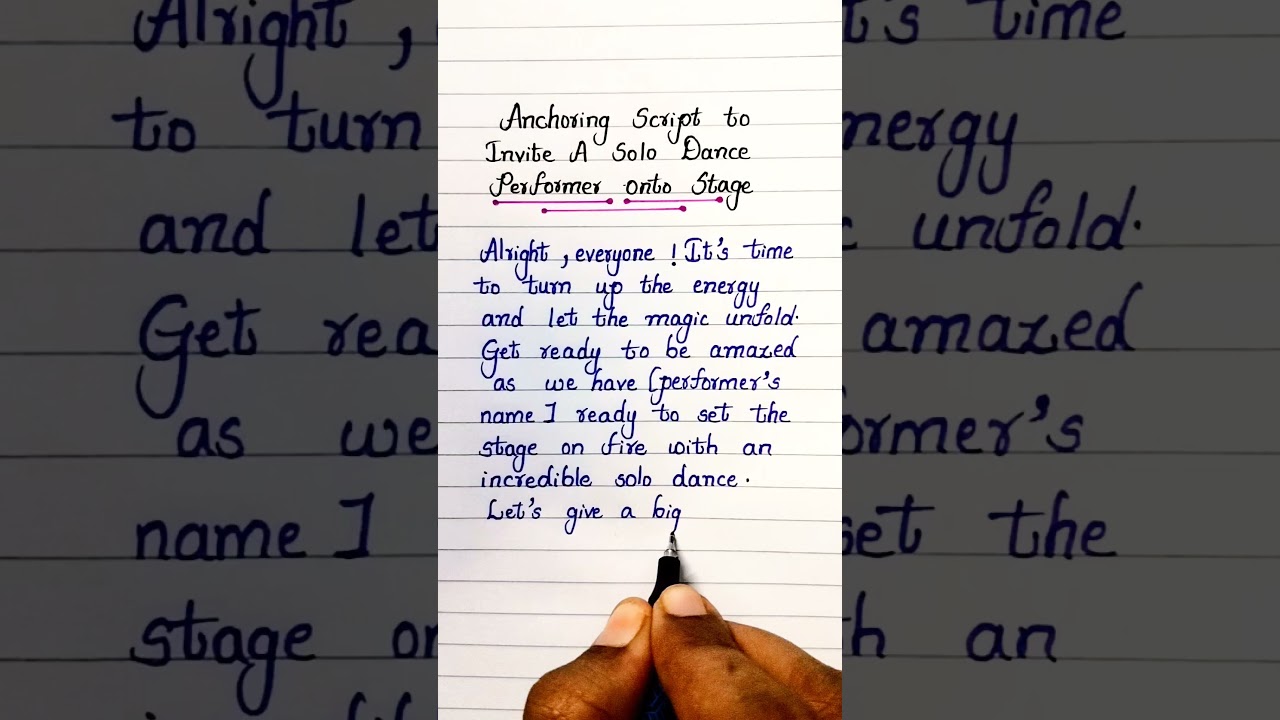 Anchoring Script to
Invite A Solo Dance
Performer onto Stage
Alright, everyone! It's time
to turn up the energy
and let the magic unfold.
Get ready to be amazed
as we have [performer's
name] ready to set the
stage on fire with an
incredible solo dance.
Let's give a big